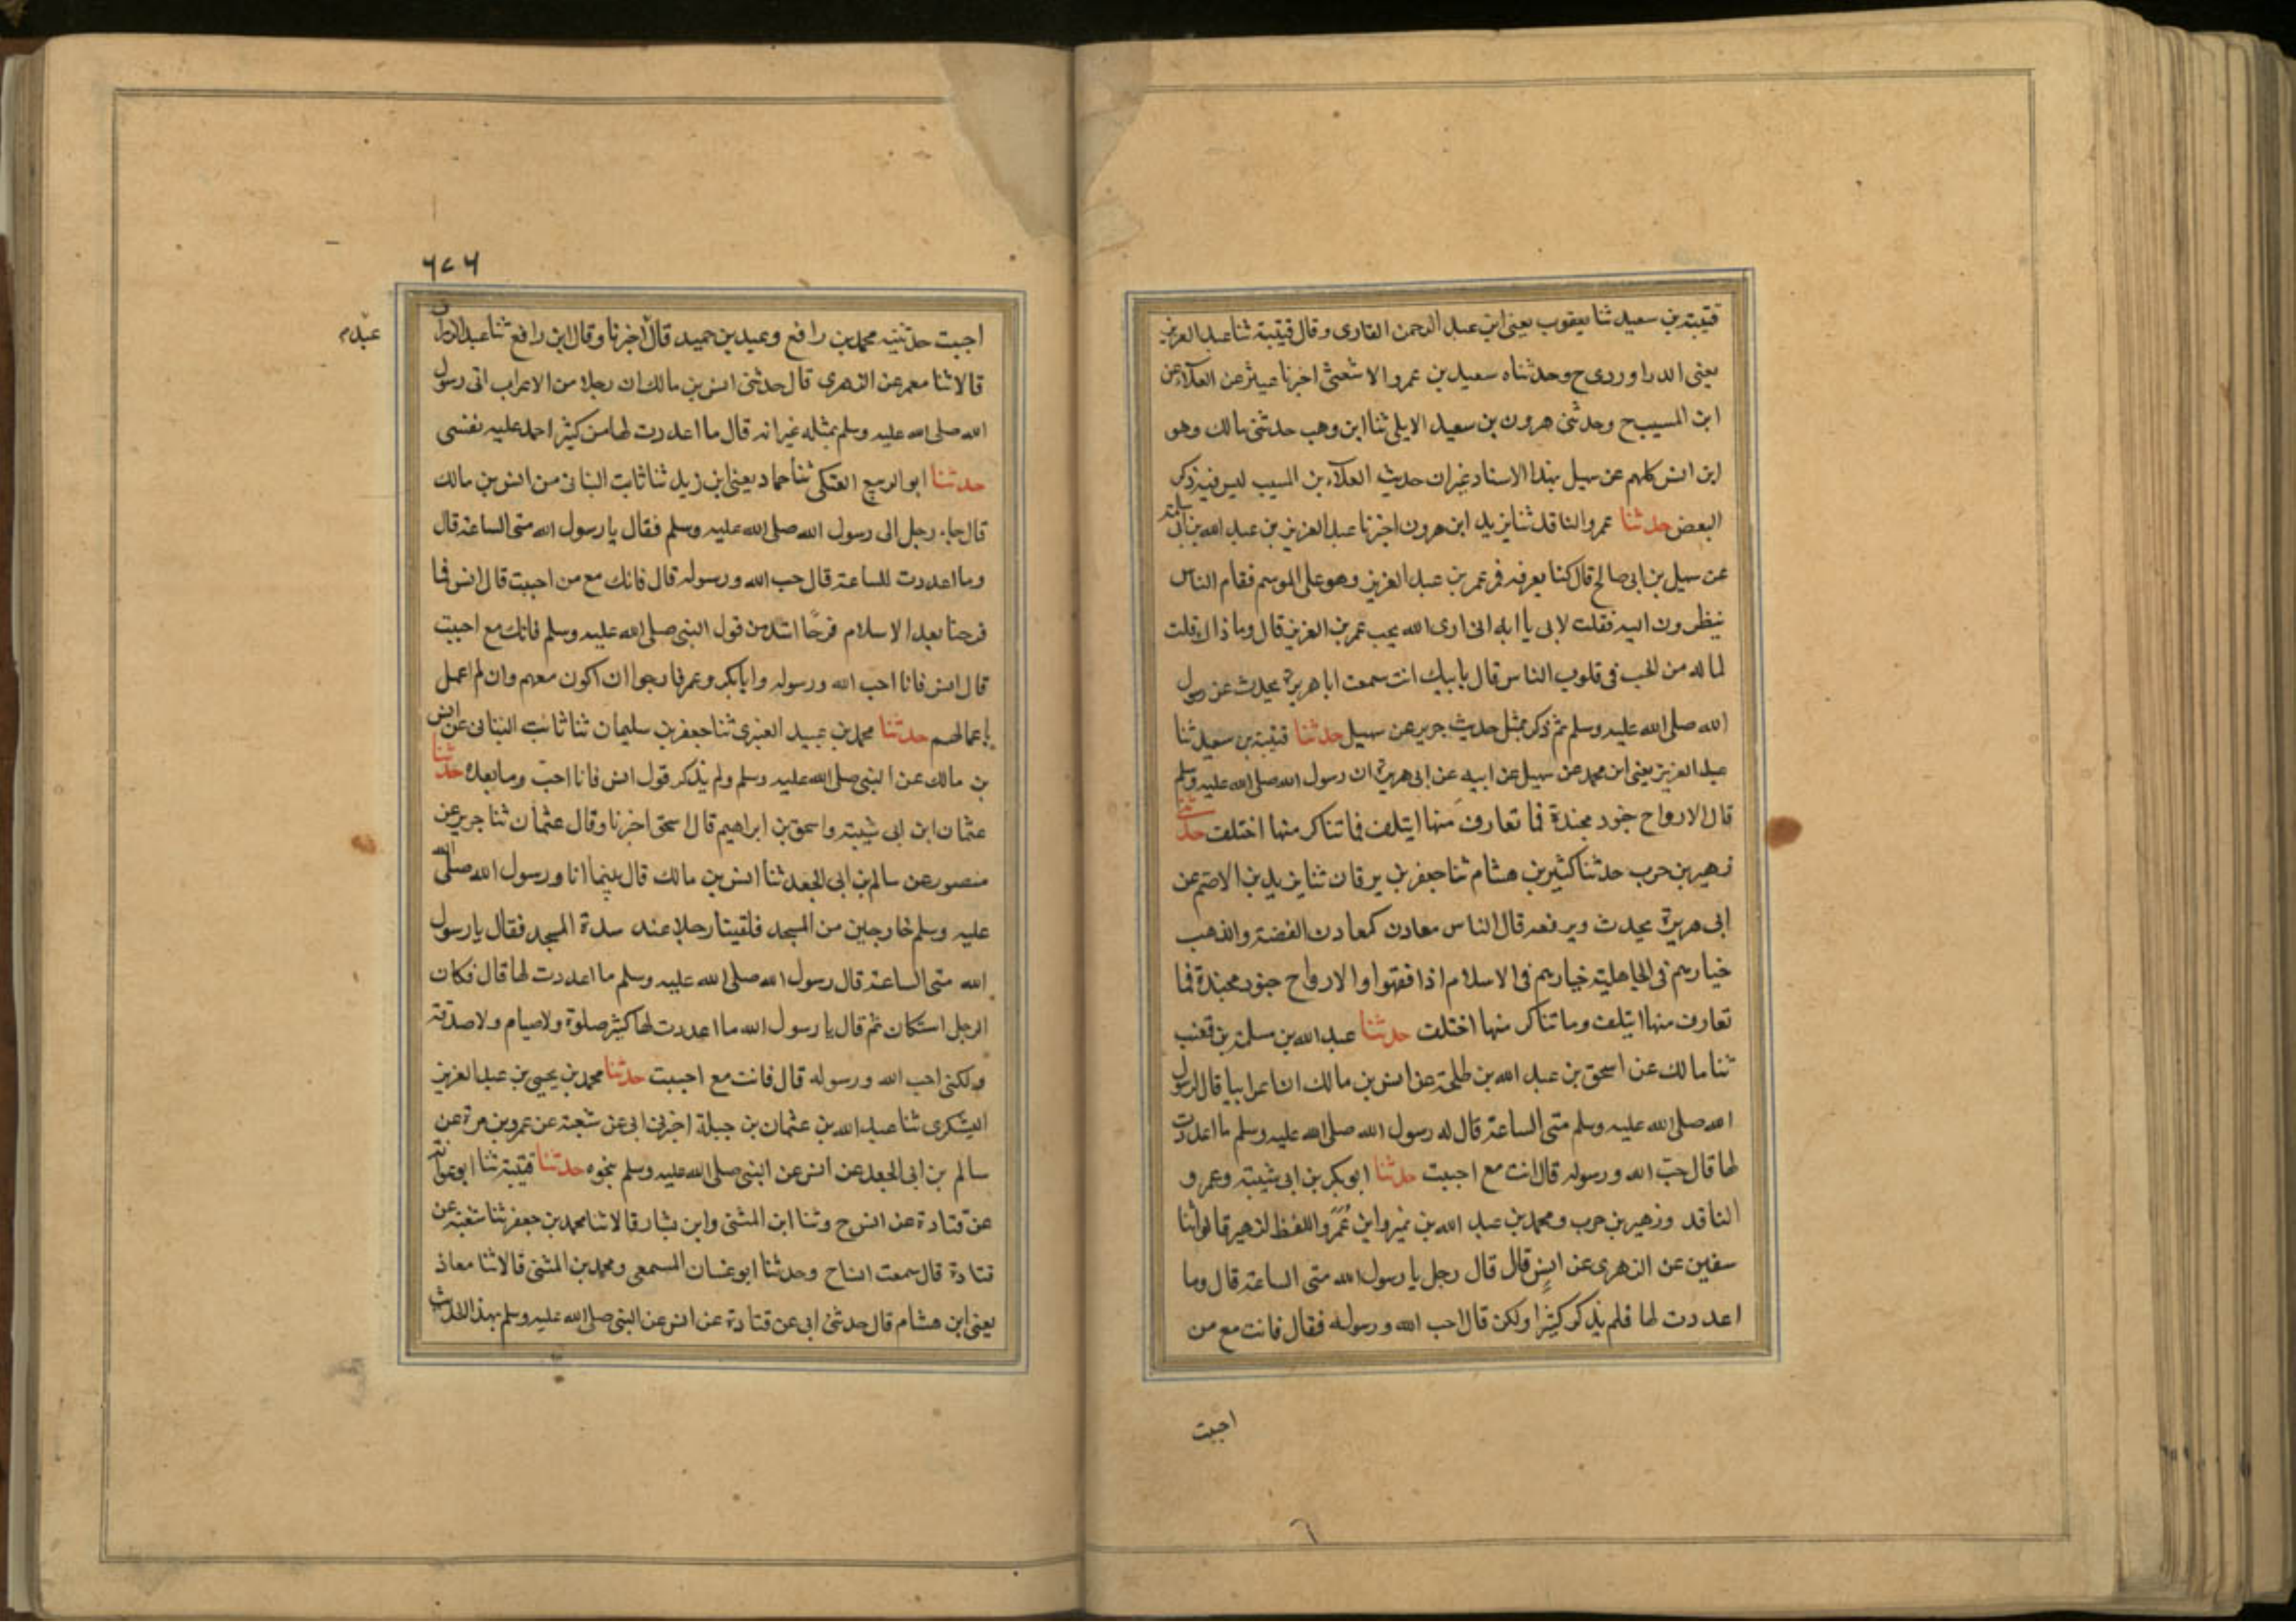 قتيبة بن سعيد ثنا يعقوب يعني ابن عبد الرحمن القاري وقال قتيبة ثنا عبد العزيز
يعني الدراوردي ح وحدثناه سعيد بن عمرو الاشعثي اخبرنا عبثر عن العلاء بن
ابن المسيب ح وحدثني هرون بن سعيد الايلي ثنا ابن وهب حدثني مالك وهو
ابن انس كلهم عن سهيل بهذا الاسناد غير ان حديث العلاء بن المسيب ليس فيه ذكر
البعض حدثنا عمرو الناقد ثنا يزيد ابن هرون اخبرنا عبد العزيز بن عبد الله بن ابي سلمة
عن سهيل بن ابي صالح قال كنا بعرفة فمر عمر بن عبد العزيز وهو على الموسم فقام الناس
ينظرون اليه فقلت لابي يا ابه اني ارى الله يحب عمر بن العزيز قال وما ذاك قلت
لما له من الحب في قلوب الناس قال بابيك انت سمعت ابا هريرة يحدث عن رسول
الله صلى الله عليه وسلم ثم ذكر بمثل حديث جرير عن سهيل حدثنا قتيبة بن سعيد ثنا
عبد العزيز يعني ابن محمد عن سهيل عن ابيه عن ابي هريرة ان رسول الله صلى الله عليه وسلم
قال الارواح جنود مجندة فما تعارف منها ايتلف فما تناكر منها اختلف حدثني
زهير بن حرب حدثنا كثير بن هشام ثنا جعفر بن برقان ثنا يزيد بن الاصم عن
ابي هريرة يحدث ويرفعه قال الناس معادن كمعادن الفضة والذهب
خيارهم في الجاهلية خيارهم في الاسلام اذا فقهوا والارواح جنود مجندة فما
تعارف منها ايتلف وما تناكر منها اختلف حدثنا عبد الله بن مسلمة بن قعنب
ثنا مالك عن اسحق بن عبد الله بن طلحة عن انس بن مالك ان اعرابيا قال لرسول
الله صلى الله عليه وسلم متى الساعة قال له رسول الله صلى الله عليه وسلم ما اعددت
لها قال حب الله ورسوله قال انت مع احببت حدثنا ابو بكر بن ابي شيبة وعمرو
الناقد وزهير بن حرب ومحمد بن عبد الله بن نمير وابن عمر واللفظ لزهير قالوا ثنا
سفين عن الزهري عن انس قال قال رجل يا رسول الله متى الساعة قال وما
اعددت لها فلم يذكر كثيرا ولكن قال احب الله ورسوله فقال فانت مع من
احببت
٦
٦٧٦
احببت حدثنيه محمد بن رافع وعبد بن حميد قال اخبرنا وقال ابن رافع ثنا عبد الرزاق
عبد م
قالا ثنا معمر عن الزهري قال حدثني انس بن مالك ان رجلا من الاعراب اتى رسول
الله صلى الله عليه وسلم بمثله غير انه قال ما اعددت لها من كثير احمد عليه نفسي
حدثنا ابو الربيع العتكي ثنا حماد يعني ابن زيد ثنا ثابت البناني من انس بن مالك
قال جاء رجل الى رسول الله صلى الله عليه وسلم فقال يا رسول الله متى الساعة قال
وما اعددت للساعة قال حب الله ورسوله قال فانك مع من احببت قال انس فما
فرحنا بعد الاسلام فرحًا اشد من قول النبي صلى الله عليه وسلم فانك مع احببت
قال انس فانا احب الله ورسوله وابا بكر وعمر فارجوا ان اكون معهم وان لم اعمل
باعمالهم حدثنا محمد بن عبيد الغبري ثنا جعفر بن سليمان ثنا ثابت البناني عن انس
بن مالك عن النبي صلى الله عليه وسلم ولم يذكر قول انس فانا احب وما بعده حدثنا
عثمان ابن ابي شيبة واسحق بن ابراهيم قال اسحق اخبرنا وقال عثمان ثنا جرير عن
منصور عن سالم بن ابي الجعد ثنا انس بن مالك قال بينما انا ورسول الله صلى الله
عليه وسلم خارجين من المسجد فلقينا رجلا عند سدة المسجد فقال يا رسول
الله متى الساعة قال رسول الله صلى الله عليه وسلم ما اعددت لها قال فكان
الرجل استكان ثم قال يا رسول الله ما اعددت لها كثير صلوة ولا صيام ولا صدقة
ولكني احب الله ورسوله قال فانت مع احببت حدثنا محمد بن يحيى بن عبد العزيز
اليشكري ثنا عبد الله بن عثمان بن جبلة اخبرني ابي عن شعبة عن عمرو بن مرة عن
سالم بن ابي الجعد عن انس عن النبي صلى الله عليه وسلم بنحوه حدثنا قتيبة ثنا ابو عوانة
عن قتادة عن انس ح وثنا ابن المثنى وابن بشار قالا ثنا محمد بن جعفر ثنا شعبة عن
قتادة قال سمعت انسا ح وحدثنا ابو غسان المسمعي ومحمد بن المثنى قالا ثنا معاذ
يعني ابن هشام قال حدثني ابي عن قتادة عن انس عن النبي صلى الله عليه وسلم بهذا الحديث